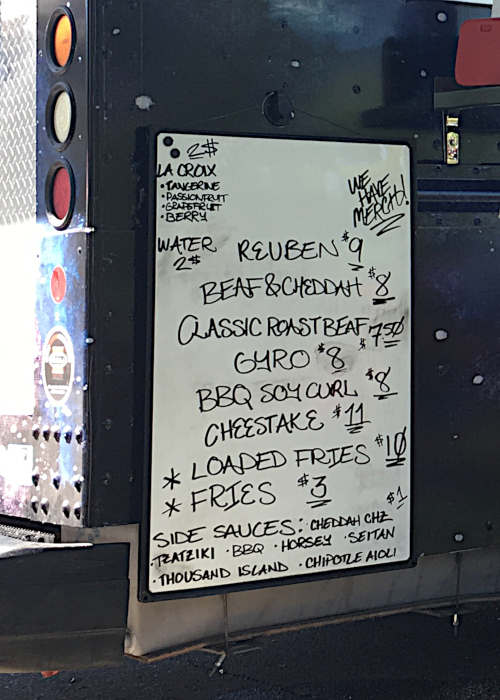 2$
LA CROIX
• TANGERINE
• PASSIONFRUIT
• GRAPEFRUIT
• BERRY
WE HAVE MERCH!
WATER
2$
REUBEN $9
BEAF & CHEDDAH $8
CLASSIC ROAST BEAF $750
GYRO $8
BBQ SOY CURL $8
CHEESTAKE $11
* LOADED FRIES $10
* FRIES $3
$1
SIDE SAUCES: · CHEDDAH CHZ
· TZATZIKI · BBQ · HORSEY · SEITAN
· THOUSAND ISLAND · CHIPOTLE AIOLI